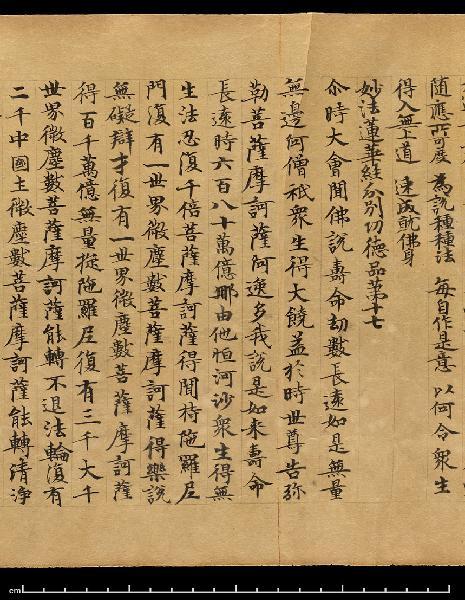 随應所可度 為說種種法 每自作是意 以何令衆生
得入無上道 速成就佛身
妙法蓮華經分別功德品第十七
尒時大會聞佛說壽命劫數長遠如是無量
無邊阿僧祇衆生得大饒益於時世尊告弥
勒菩薩摩訶薩阿逸多我說是如来壽命
長遠時六百八十萬億那由他恒河沙衆生得無
生法忍復千倍菩薩摩訶薩得聞持陁羅尼
門復有一世界微塵數菩薩摩訶薩得樂說
無礙辯才復有一世界微塵數菩薩摩訶薩
得百千萬億無量挺陁羅尼復有三千大千
世界微塵數菩薩摩訶薩能轉不退法輪復有
二千中國土微塵數菩薩摩訶薩能轉清淨
cm